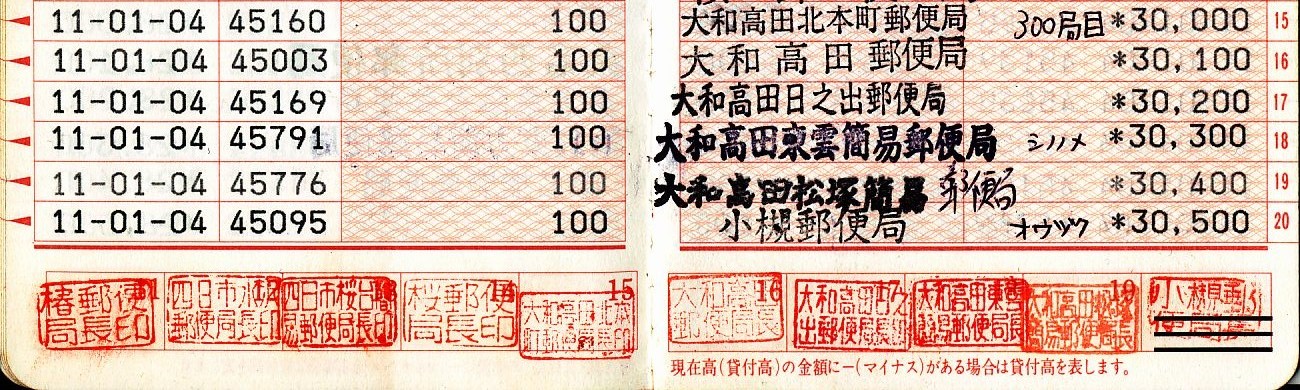 11-01-04 45160 100 大和高田北本町郵便局 300局目 *30,000 15
11-01-04 45003 100 大和高田郵便局 *30,100 16
11-01-04 45169 100 大和高田日之出郵便局 *30,200 17
11-01-04 45791 100 大和高田東雲簡易郵便局 シノノメ *30,300 18
11-01-04 45776 100 大和高田松塚簡易郵便局 *30,400 19
11-01-04 45095 100 小槻郵便局 オウヅク *30,500 20
椿郵便局長印
四日市水 郵便局長印
四日市桜日 易郵便局長印
桜郵便局長印
15 大和高田北本 郵便局
16 大和高田郵便局長
17 大和高田日之出郵便局長
大和高田東雲簡易郵便局長
19 大和高田松塚簡易郵便局長
現在高(貸付高)の金額に−(マイナス)がある場合は貸付高を表します。